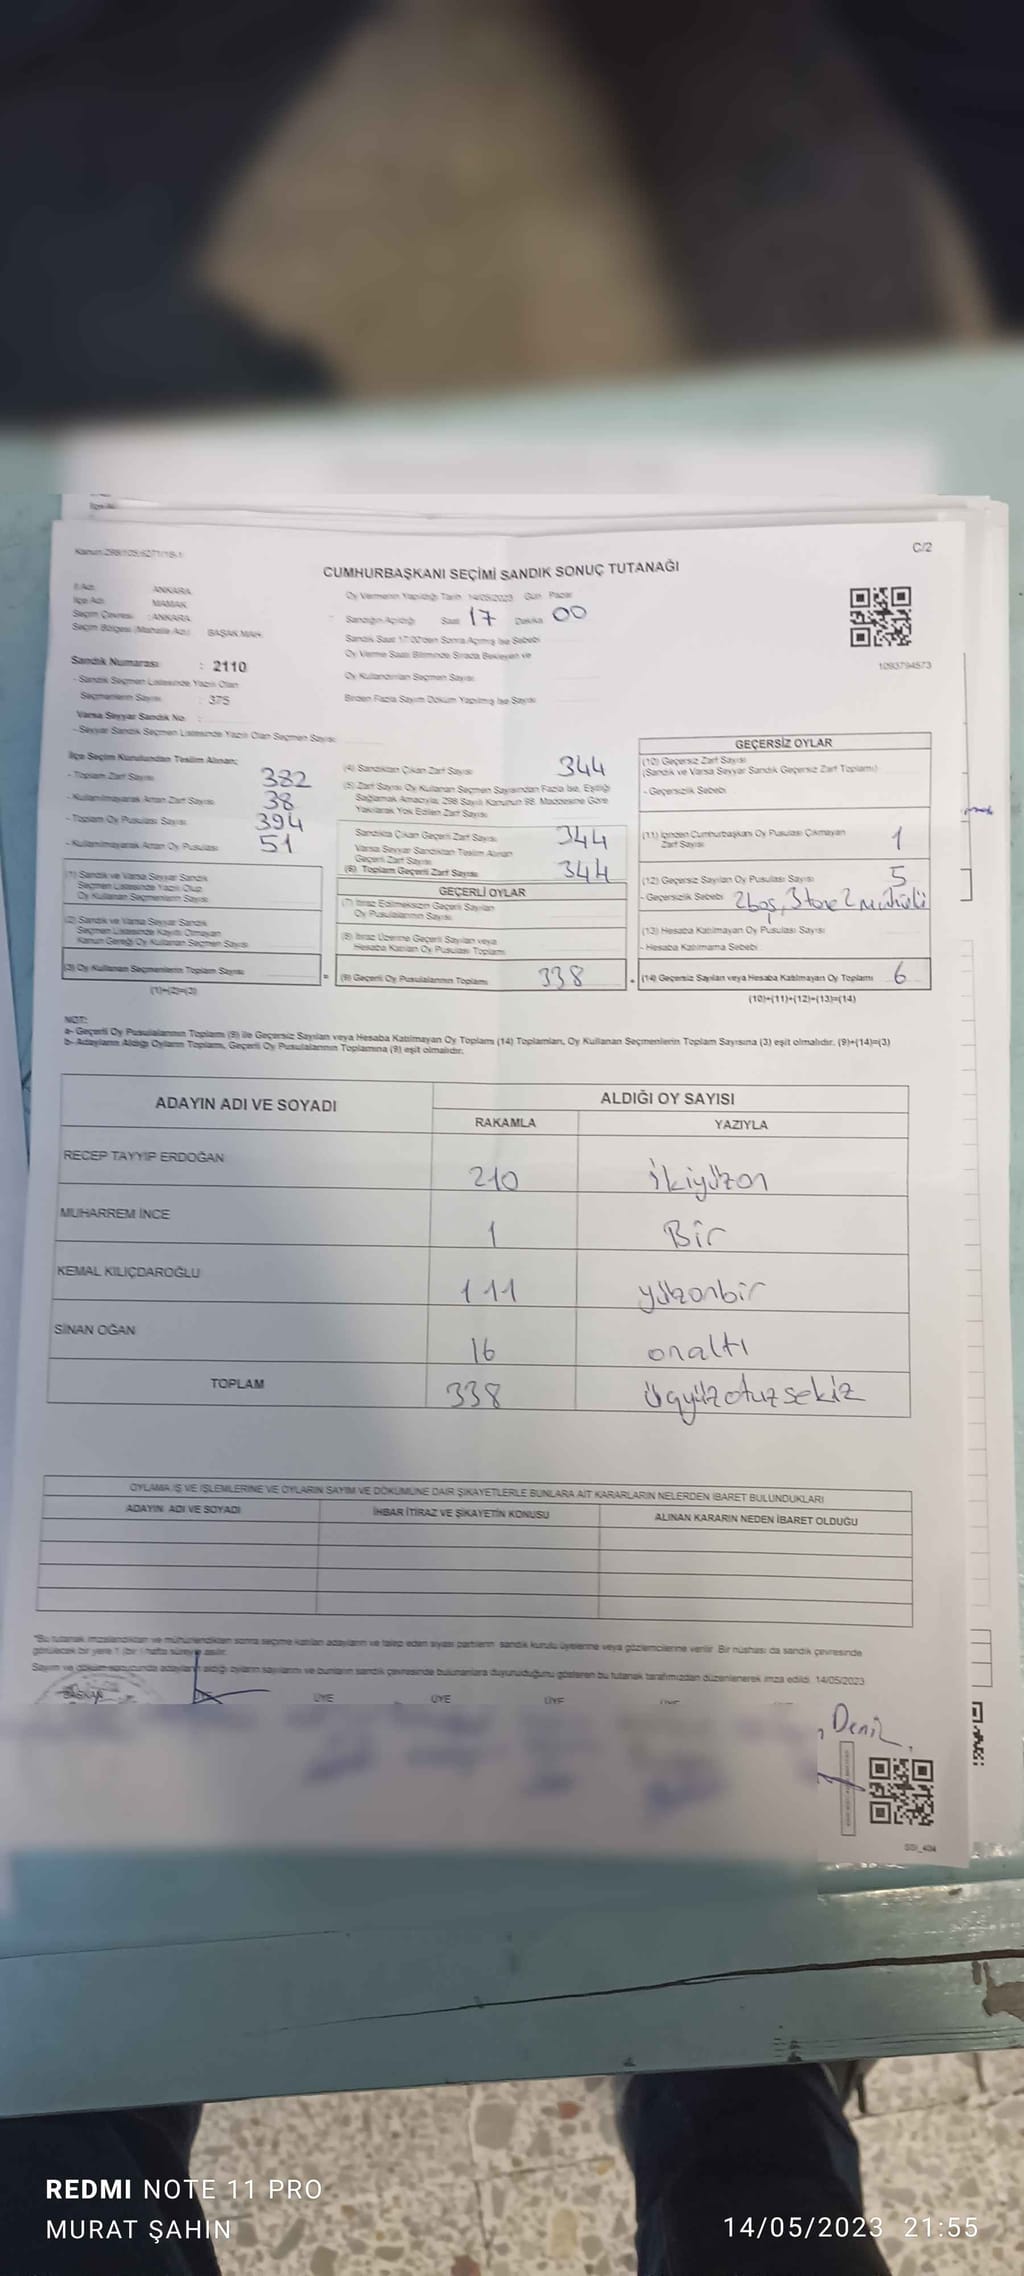 Kanun 298/105;6271/18-1
C/2
CUMHURBAŞKANI SEÇİMİ SANDIK SONUÇ TUTANAĞI
İl Adı : ANKARA
İlçe Adı : MAMAK
Seçim Çevresi : ANKARA
Seçim Bölgesi (Mahalle Adı) : BAŞAK MAH.
Sandık Numarası : 2110
- Sandık Seçmen Listesinde Yazılı Olan
Seçmenlerin Sayısı : 375
Varsa Seyyar Sandık No :
- Seyyar Sandık Seçmen Listesinde Yazılı Olan Seçmen Sayısı:
Oy Vermenin Yapıldığı Tarih 14/05/2023 Gün Pazar
Sandığın Açıldığı Saat 17 Dakika 00
Sandık Saat 17:00'den Sonra Açılmış İse Sebebi
Oy Verme Saati Bitiminde Sırada Bekleyen ve
Oy Kullandırılan Seçmen Sayısı
Birden Fazla Sayım Döküm Yapılmış İse Sayısı
1093794573
İlçe Seçim Kurulundan Teslim Alınan;
- Toplam Zarf Sayısı 382
- Kullanılmayarak Artan Zarf Sayısı 38
- Toplam Oy Pusulası Sayısı 394
- Kullanılmayarak Artan Oy Pusulası 51
(1) Sandık ve Varsa Seyyar Sandık
Seçmen Listesinde Yazılı Olup
Oy Kullanan Seçmenlerin Sayısı
(2) Sandık ve Varsa Seyyar Sandık
Seçmen Listesinde Kayıtlı Olmayan
Kanun Gereği Oy Kullanan Seçmen Sayısı
(3) Oy Kullanan Seçmenlerin Toplam Sayısı
(1)+(2)=(3)
(4) Sandıktan Çıkan Zarf Sayısı 344
(5) Zarf Sayısı Oy Kullanan Seçmen Sayısından Fazla İse, Eşitliği
Sağlamak Amacıyla; 298 Sayılı Kanunun 98. Maddesine Göre
Yakılarak Yok Edilen Zarf Sayısı
Sandıkta Çıkan Geçerli Zarf Sayısı 344
Varsa Seyyar Sandıktan Teslim Alınan
Geçerli Zarf Sayısı
(6) Toplam Geçerli Zarf Sayısı 344
GEÇERLİ OYLAR
(7) İtiraz Edilmeksizin Geçerli Sayılan
Oy Pusulalarının Sayısı
(8) İtiraz Üzerine Geçerli Sayılan veya
Hesaba Katılan Oy Pusulası Toplamı
= (9) Geçerli Oy Pusulalarının Toplamı 338
GEÇERSİZ OYLAR
(10) Geçersiz Zarf Sayısı
(Sandık ve Varsa Seyyar Sandık Geçersiz Zarf Toplamı)
- Geçersizlik Sebebi
(11) İçinden Cumhurbaşkanı Oy Pusulası Çıkmayan
Zarf Sayısı 1
(12) Geçersiz Sayılan Oy Pusulası Sayısı 5
- Geçersizlik Sebebi 2boş, 3 tane 2 mühürlü
(13) Hesaba Katılmayan Oy Pusulası Sayısı
- Hesaba Katılmama Sebebi
+ (14) Geçersiz Sayılan veya Hesaba Katılmayan Oy Toplamı 6
(10)+(11)+(12)+(13)=(14)
NOT:
a- Geçerli Oy Pusulalarının Toplamı (9) ile Geçersiz Sayılan veya Hesaba Katılmayan Oy Toplamı (14) Toplamları, Oy Kullanan Seçmenlerin Toplam Sayısına (3) eşit olmalıdır. (9)+(14)=(3)
b- Adayların Aldığı Oyların Toplamı, Geçerli Oy Pusulalarının Toplamına (9) eşit olmalıdır.
ADAYIN ADI VE SOYADI
ALDIĞI OY SAYISI
RAKAMLA YAZIYLA
RECEP TAYYİP ERDOĞAN 210 ikiyüzon
MUHARREM İNCE 1 Bir
KEMAL KILIÇDAROĞLU 111 yüzonbir
SİNAN OĞAN 16 onaltı
TOPLAM 338 üçyüzotuzsekiz
OYLAMA İŞ VE İŞLEMLERİNE VE OYLARIN SAYIM VE DÖKÜMÜNE DAİR ŞİKAYETLERLE BUNLARA AİT KARARLARIN NELERDEN İBARET BULUNDUKLARI
ADAYIN ADI VE SOYADI İHBAR İTİRAZ VE ŞİKAYETİN KONUSU ALINAN KARARIN NEDEN İBARET OLDUĞU
*Bu tutanak imzalandıktan ve mühürlendikten sonra seçime katılan adayların ve talep eden siyasi partilerin sandık kurulu üyelerine veya gözlemcilerine verilir. Bir nüshası da sandık çevresinde
görülecek bir yere 1 (bir) hafta süreyle asılır.
Sayım ve döküm sonucunda adayların aldığı oyların sayılarını ve bunların sandık çevresinde bulunanlara duyurulduğunu gösteren bu tutanak tarafımızdan düzenlenerek imza edildi. 14/05/2023
BAŞKAN ÜYE ÜYE ÜYE ÜYE ÜYE
Deniz
REDMI NOTE 11 PRO
MURAT ŞAHIN
14/05/2023 21:55